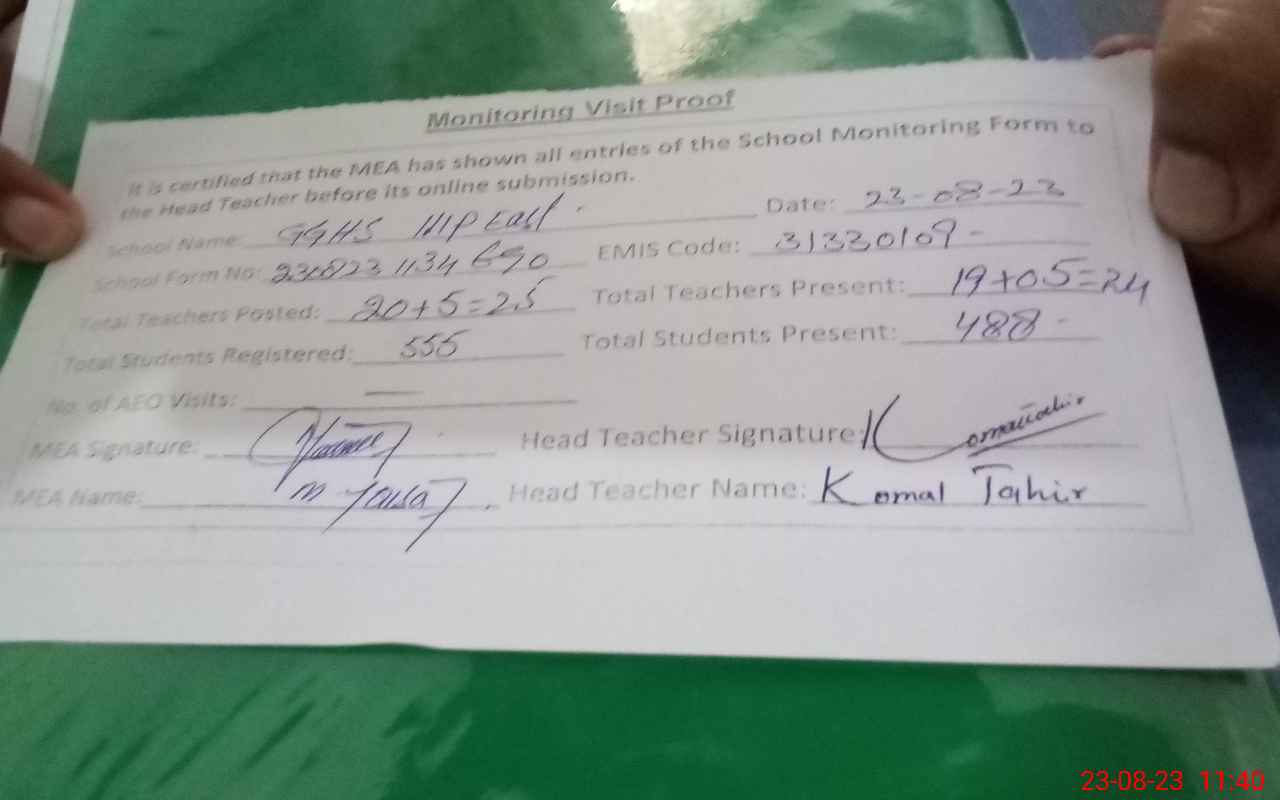 Monitoring Visit Proof
It is certified that the MEA has shown all entries of the School Monitoring Form to
the Head Teacher before its online submission.
School Name: GGHS 111P East Date: 23-08-23
School Form No: 230823 1134 690 EMIS Code: 31330109
Total Teachers Posted: 20+5=25 Total Teachers Present: 19+05=24
Total Students Registered: 555 Total Students Present: 488
No. of AEO Visits: —
MEA Signature: Head Teacher Signature: Komaltahir
MEA Name: M Yousaf Head Teacher Name: Komal Tahir
23-08-23 11:40